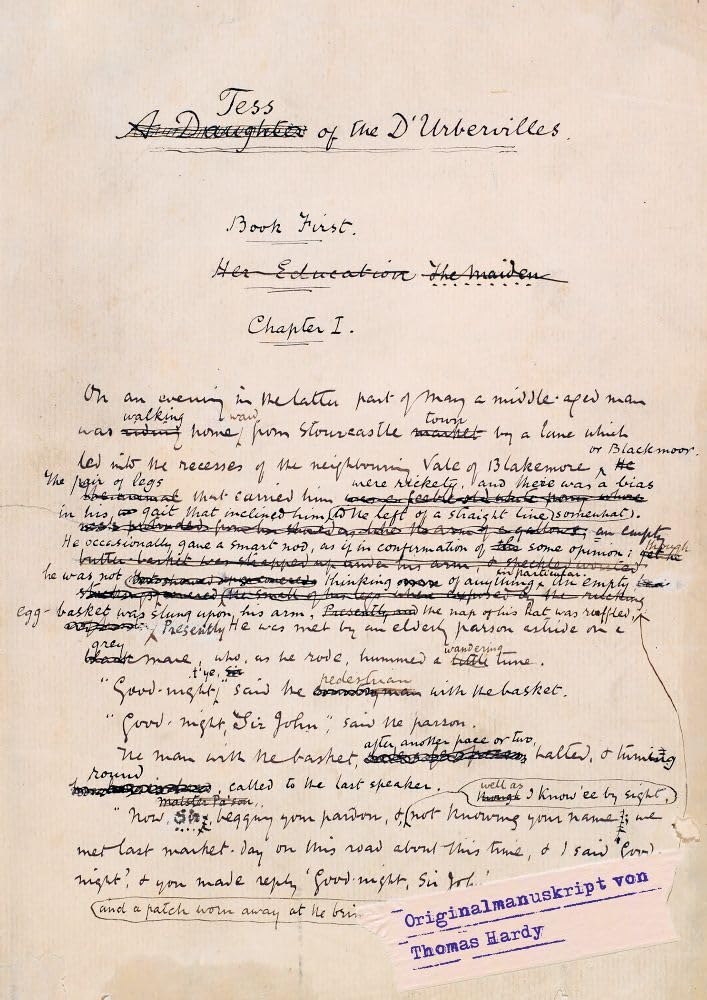 Tess
A Daughter of the D'Urbervilles.
Book First.
Her Education The Maiden
Chapter I.
On an evening in the latter part of May a middle-aged man
walking ward town
was riding home, from Stourcastle market by a lane which
or Blackmoor.
led into the recesses of the neighbouring Vale of Blakemore He
The pair of legs were rickety, and there was a bias
The animal that carried him was a feeble old white pony whose
in his gait that inclined him (to the left of a straight line) somewhat).
an empty
He occasionally gave a smart nod, as if in confirmation of the some opinion; though
butter basket was strapped up under his arm,
in particular.
he was not thinking of anything An empty
egg-basket was slung upon his arm; Presently and the nap of his hat was ruffled;
Presently He was met by an elderly parson astride on a
grey wandering
black mare, who, as he rode, hummed a little tune.
t'ye, Sir pedestrian
"Good-night," said the countryman with the basket.
"Good-night, Sir John," said the parson.
after another pace or two,
The man with the basket, halted, & turning
round
called to the last speaker.
well as I know 'ee by sight,
Maister Pa'son
"Now, Sir, begging your pardon, & (not knowing your name; we
met last market-day on this road about this time, & I said 'Good-
night', & you made reply 'Good-night, Sir Joh
and a patch worn away at the brim
Originalmanuskript von
Thomas Hardy